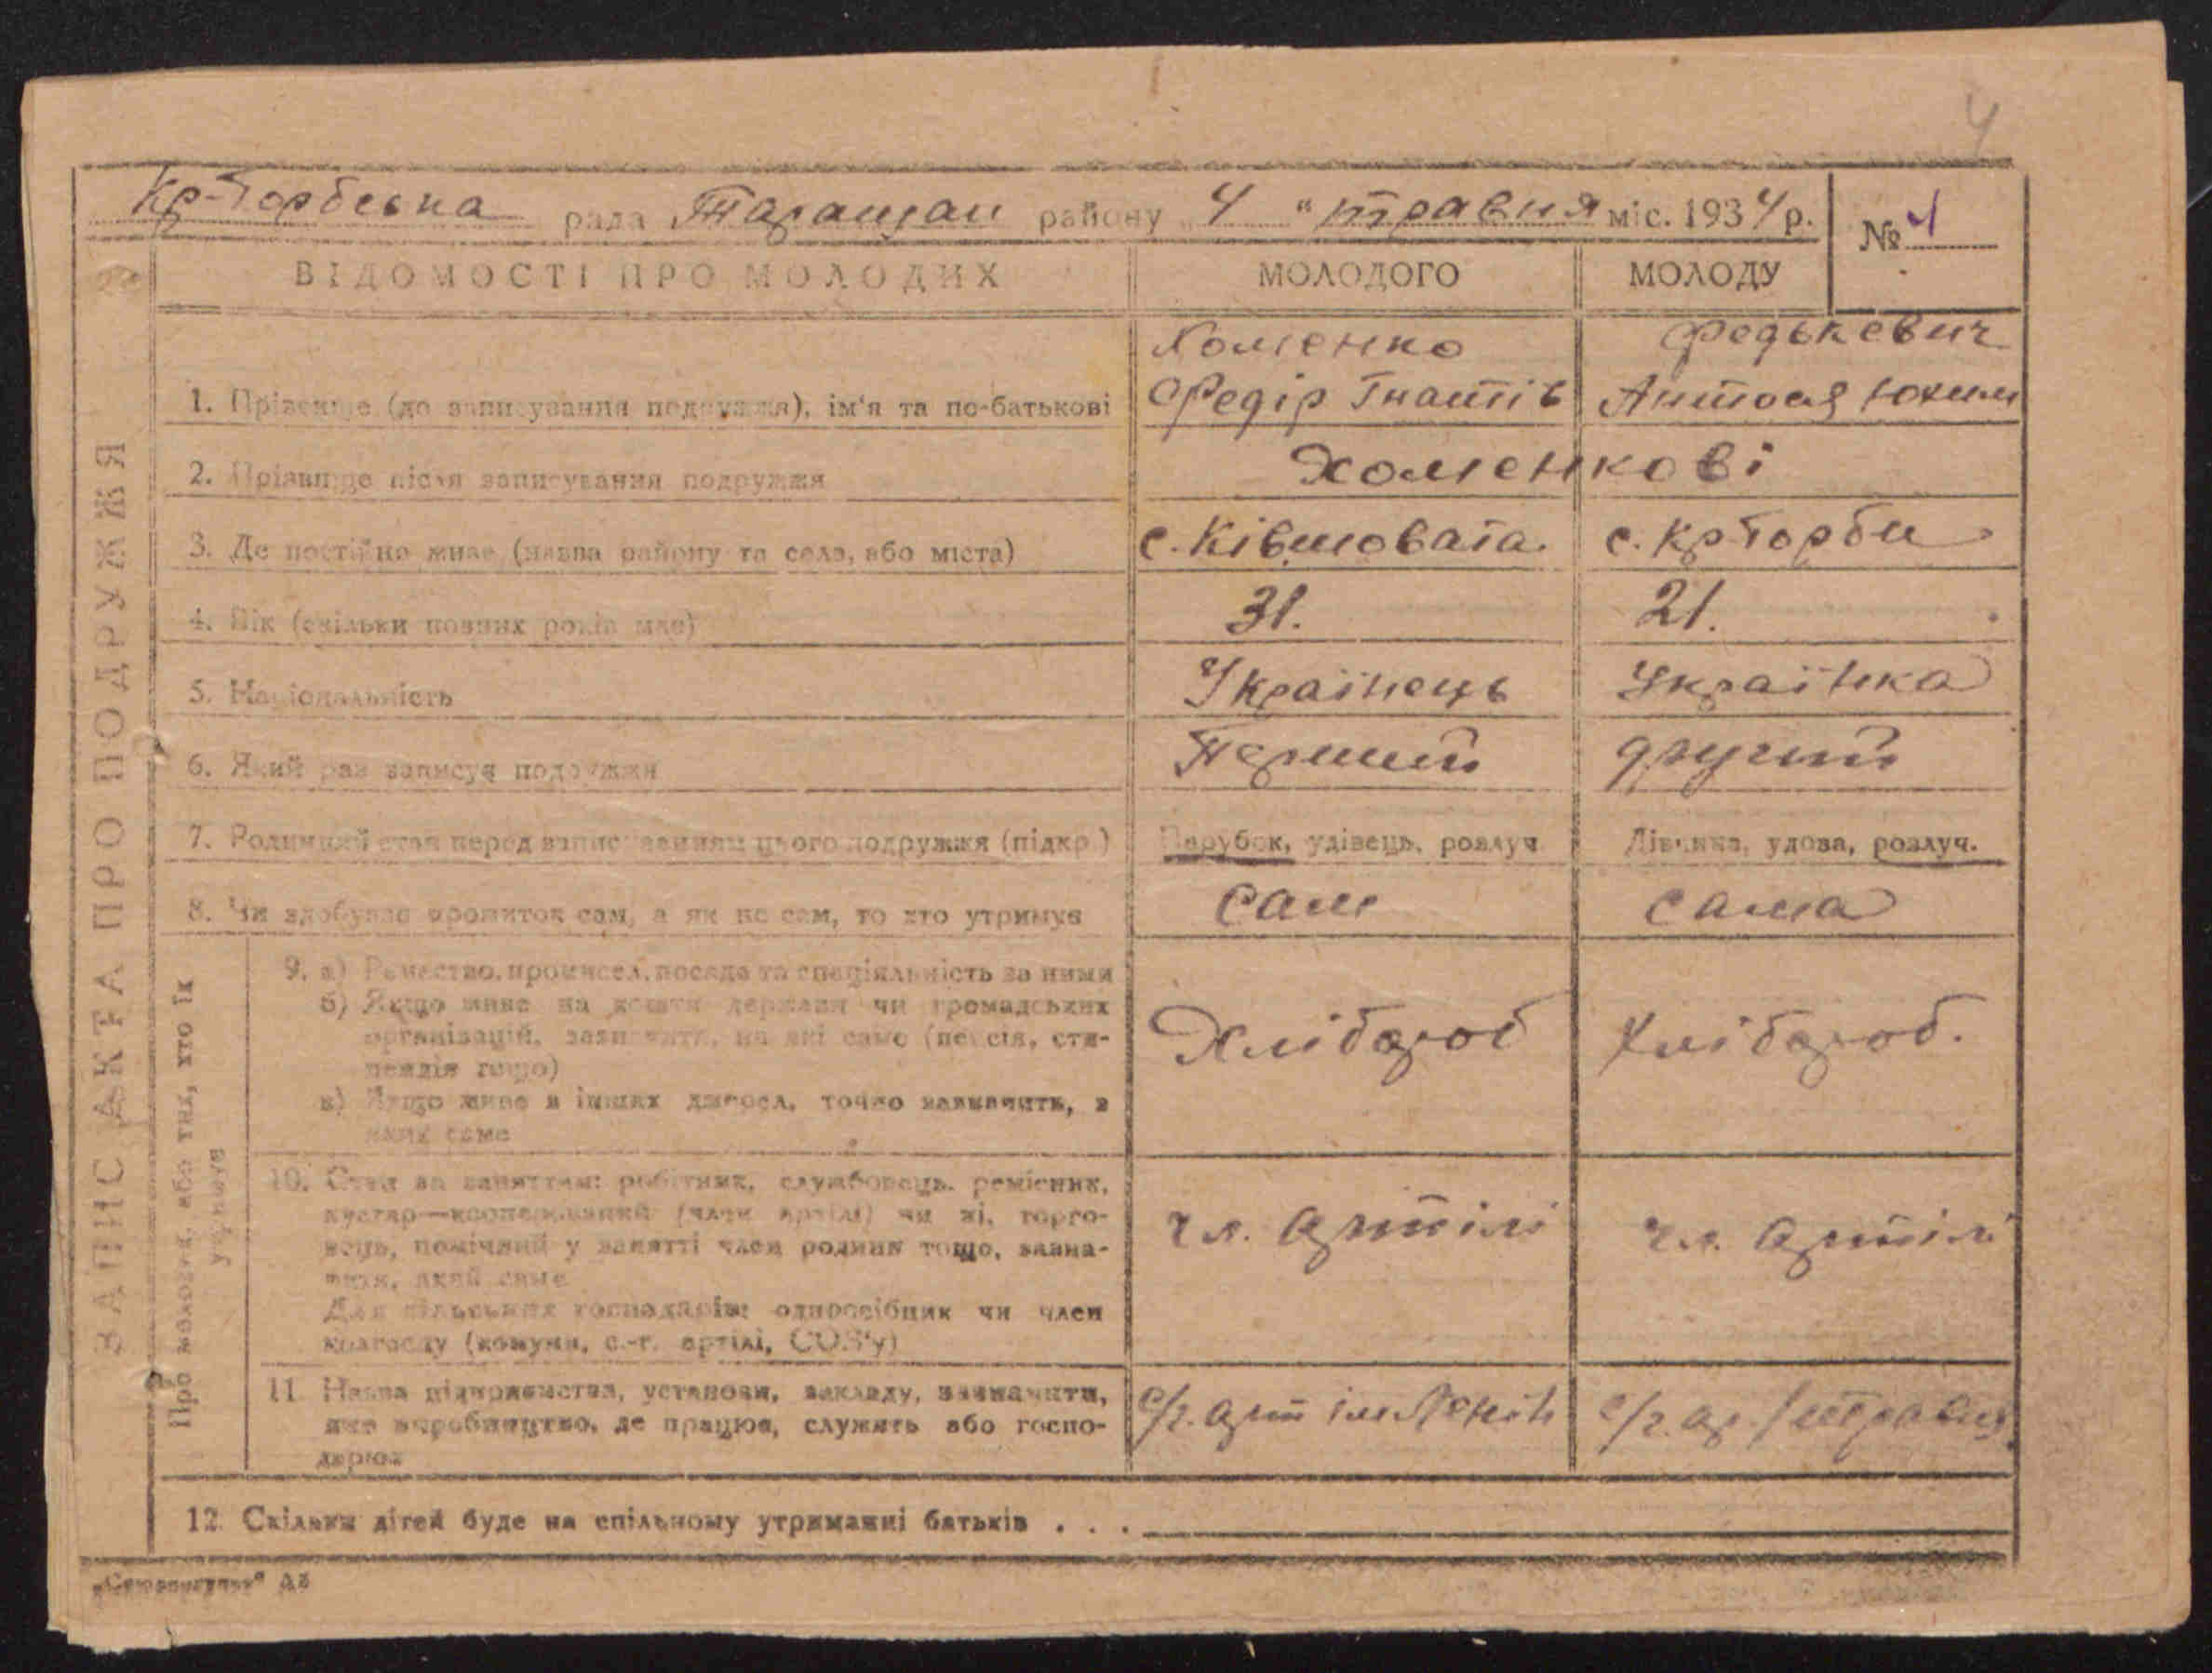 4
Кр-Горбська рада Таращан району „ 4 " травня міс. 1934 р. № 4
ВІДОМОСТІ ПРО МОЛОДИХ МОЛОДОГО МОЛОДУ
Хоменко Федькевич
1. Прізвище (до записування подружжя), ім'я та по-батькові Федір Гнатів Антося Юхим
2. Прізвище після записування подружжя Хоменкові
3. Де постійно живе (назва району та села, або міста) с. Ківшовата с. Кр Горби
4. Вік (скільки повних років має) 31. 21.
5. Національність Українець Українка
6. Який раз записує подружжя Перший другий
7. Родинний стан перед записуванням цього подружжя (підкр.) Парубок, удівець, розлуч Дівчина, удова, розлуч.
8. Чи здобуває прожиток сам, а як не сам, то хто утримує Сам Сама
9. а) Ремество, промисел, посада та спеціяльність за ними
б) Якщо живе на кошти держави чи громадських
організацій, зазначити, на які саме (пенсія, сти-
пендія тощо) Хлібороб Хлібороб.
в) Якщо живе з інших джерел, точно зазначити, з
яких саме
10. Стан за заняттям: робітник, службовець, ремісник,
кустар—кооперований (член артілі) чи ні, торго-
вець, помічний у занятті член родини тощо, зазна-
чити, який саме чл. артілі чл. артілі
Для сільських господарів: одноосібник чи член
колгоспу (комуни, с.-г. артілі, СОЗ'у)
11 Назва підприємства, установи, закладу, зазначити,
яке виробництво, де працює, служить або госпо-
дарює с/г. арт ім Ленін с/г. ар. 1 травня
12. Скільки дітей буде на спільному утриманні батьків . . .
ЗАПИС АКТА ПРО ПОДРУЖЖЯ
Про молодих, або тих, хто їх
утримує